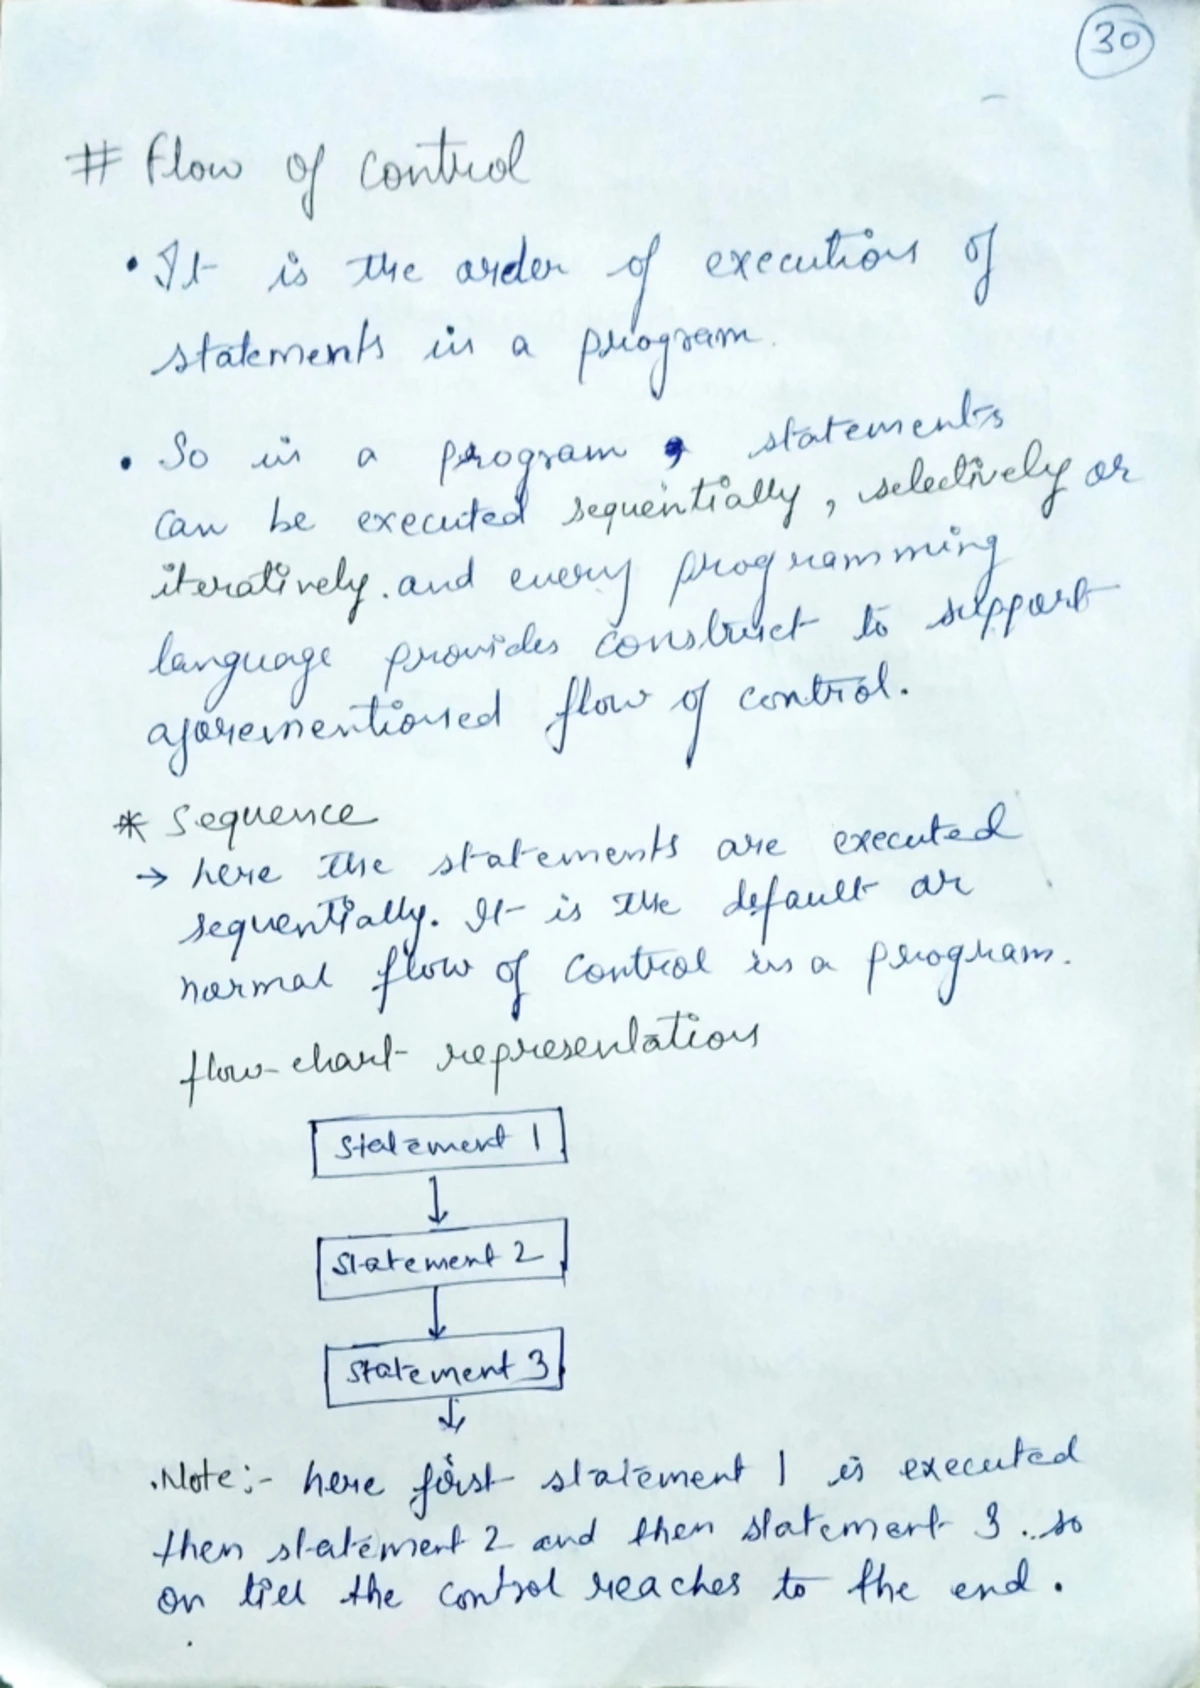 30
# Flow of control
• It is the order of execution of
statements in a program.
• So in a program, statements
can be executed sequentially, selectively or
iteratively. and every programming
language provides construct to support
aforementioned flow of control.
* Sequence
→ here the statements are executed
sequentially. It is the default or
normal flow of control in a program.
flow-chart representation
Statement 1
Statement 2
Statement 3
.Note:- here first statement 1 is executed
then statement 2 and then statement 3 .. so
on till the control reaches to the end.